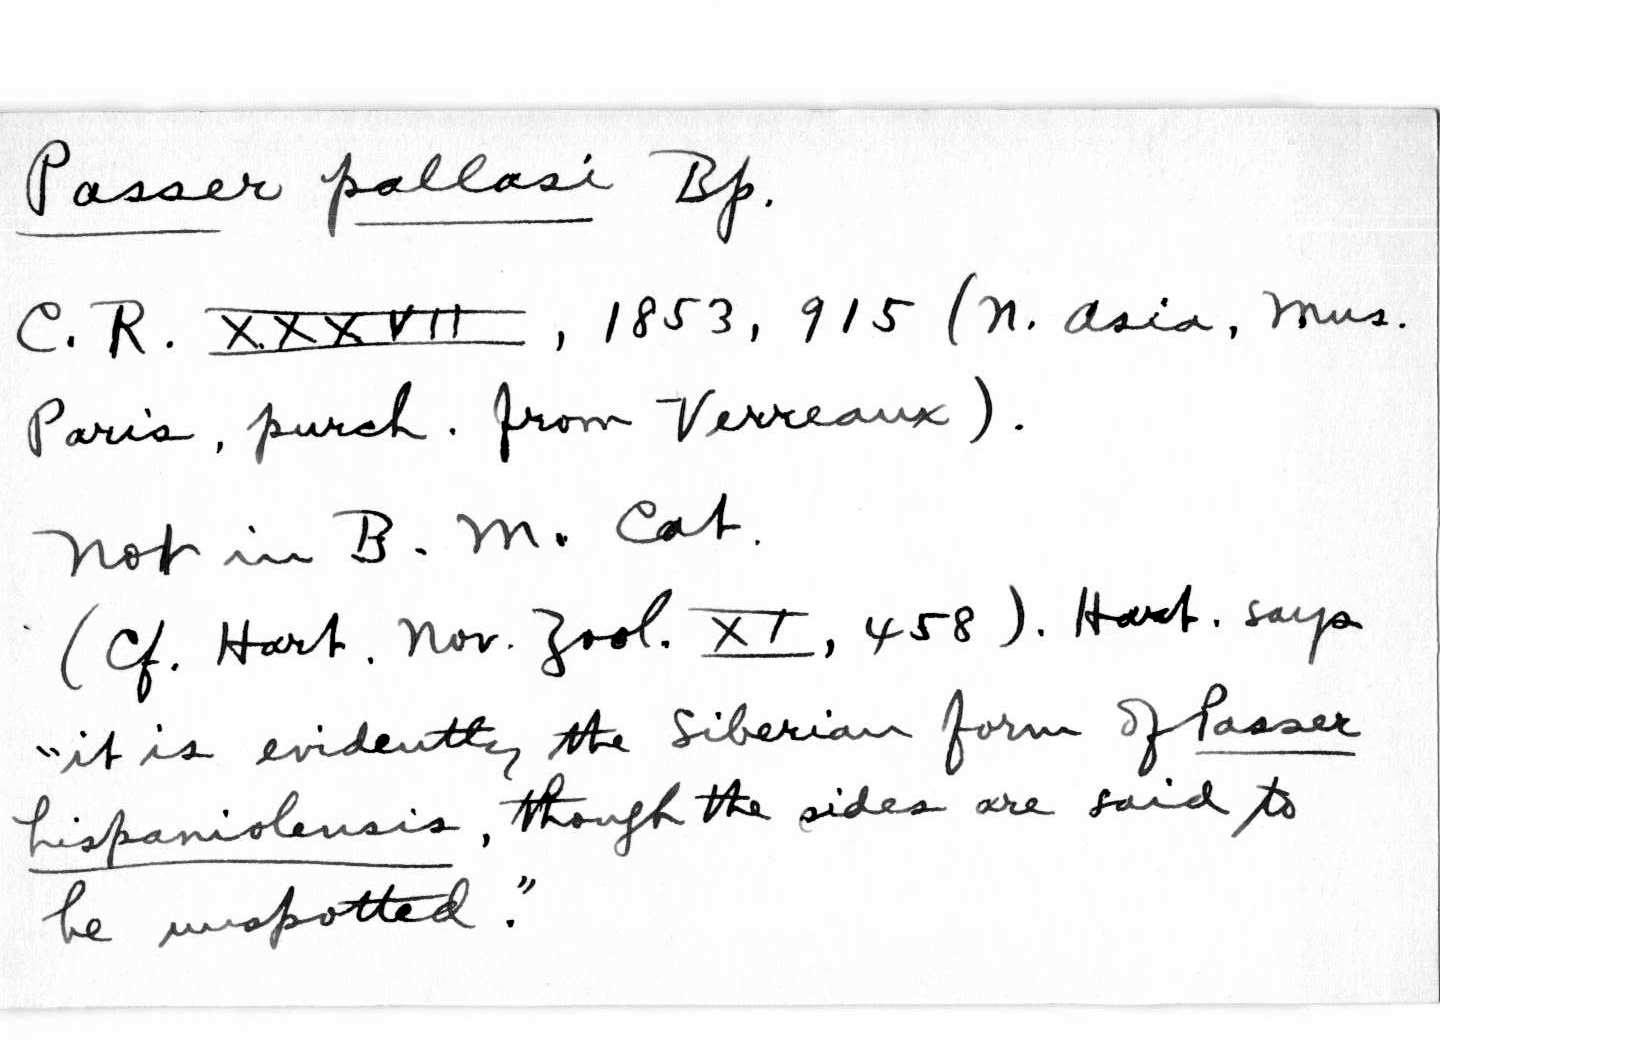 Passer pallasi Bp.
C. R. XXXVII, 1853, 915 (N. Asia, Mus.
Paris, purch. from Verreaux).
Not in B. M. Cat.
(Cf. Hart. Nov. Zool. XI, 458). Hart. says
"it is evidently the Siberian form of Passer
hispaniolensis, though the sides are said to
be unspotted."